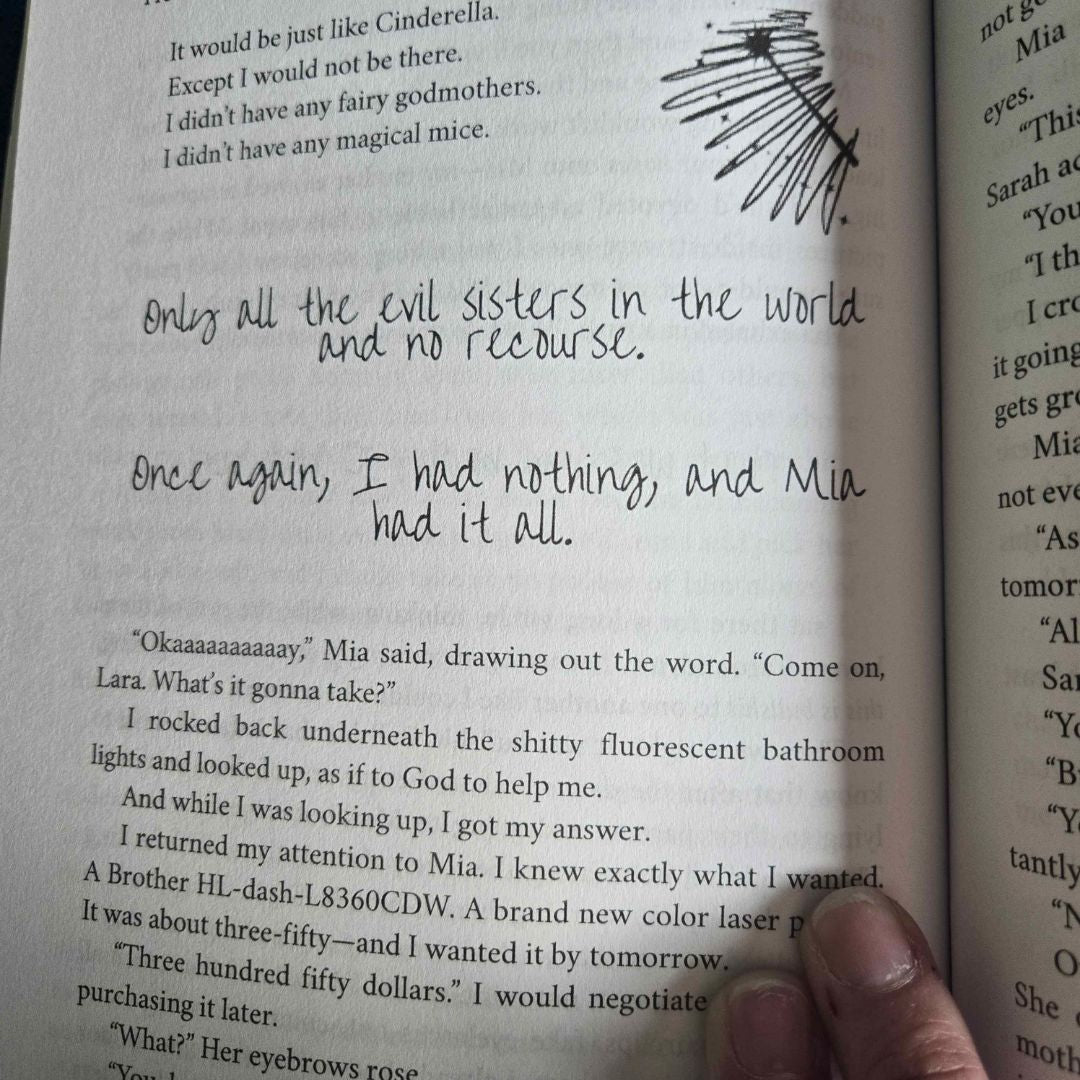 It would be just like Cinderella.
Except I would not be there.
I didn't have any fairy godmothers.
I didn't have any magical mice.
Only all the evil sisters in the world
and no recourse.
Once again, I had nothing, and Mia
had it all.
“Okaaaaaaaaaay,” Mia said, drawing out the word. “Come on,
Lara. What's it gonna take?”
I rocked back underneath the shitty fluorescent bathroom
lights and looked up, as if to God to help me.
And while I was looking up, I got my answer.
I returned my attention to Mia. I knew exactly what I wanted.
A Brother HL-dash-L8360CDW. A brand new color laser p
It was about three-fifty—and I wanted it by tomorrow.
“Three hundred fifty dollars.” I would negotiate
purchasing it later.
“What?” Her eyebrows rose
“You
not
Mia
eyes.
“This
Sarah
“You
“I th
I cro
it going
gets gro
Mia
not eve
“As
tomor
“Al
Sar
“Yo
“B
“Ya
tantly
“N
O
She
moth